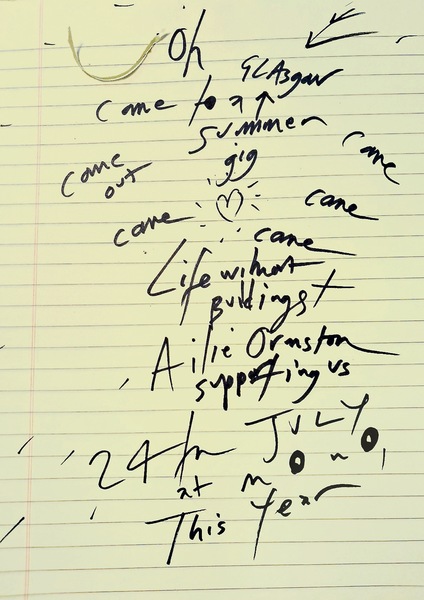 Oh
GLAsgow
Come to a ↑
Summer
gig
Come
Come
out
Come
Come
Come
Life without
Buildings +
Ailie Ormston
supporting us
24th JULY
at mono,
This Year